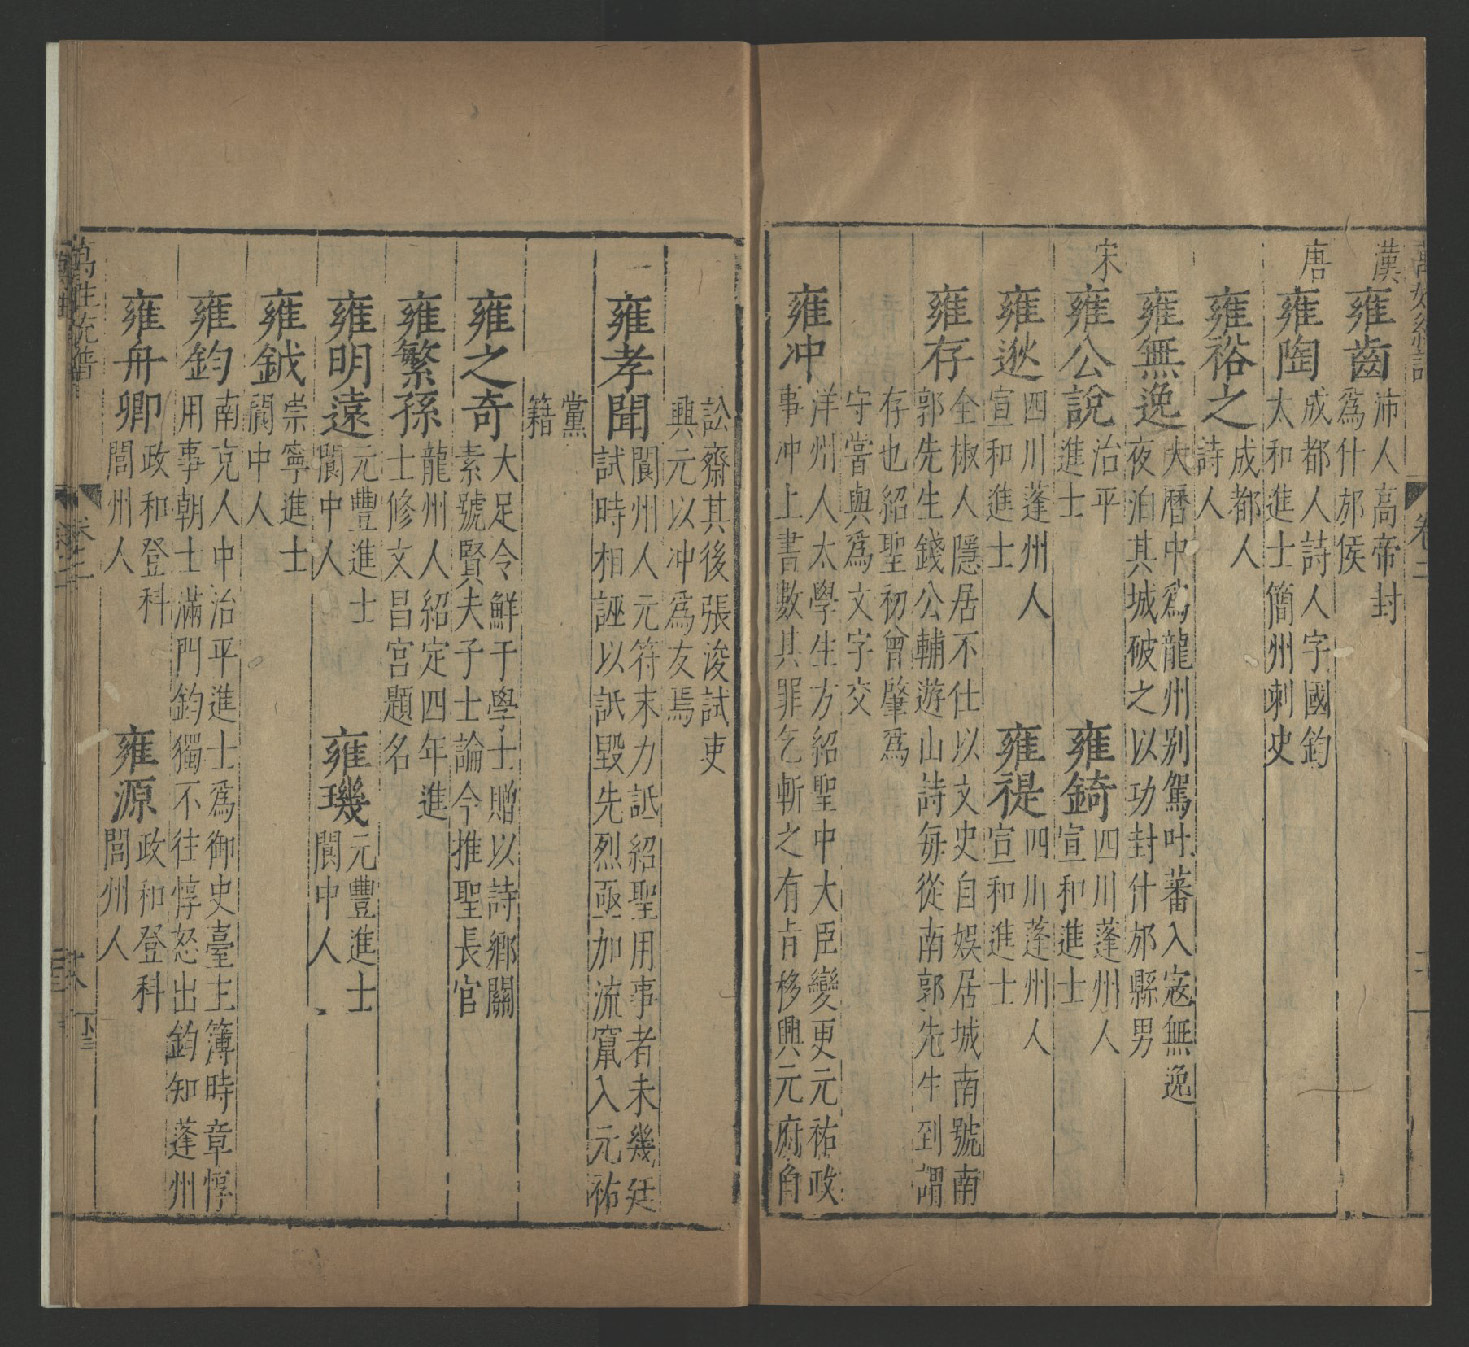 漢
雍齒 沛人高帝封
爲什邡侯
唐
雍陶 成都人詩人字國鈞
太和進士簡州刺史
雍裕之 成都人
詩人
雍無逸 大曆中爲龍州别駕吐蕃入寇無逸
夜泊其城破之以功封什邡縣男
宋
雍公說 治平
進士
雍錡 四川蓬州人
宣和進士
雍逖 四川蓬州人
宣和進士
雍禔 四川蓬州人
宣和進士
雍存 全椒人隱居不仕以文史自娛居城南號南
郭先生錢公輔遊山詩每從南郭先生到謂
存也紹聖初曾肇爲
守嘗與爲文字交
雍冲 洋州人太學生方紹聖中大臣變更元祐政
事冲上書數其罪乞斬之有旨移興元府角
訟齋其後張浚試吏
興元以冲爲友焉
雍孝聞 閬州人元符末力詆紹聖用事者未幾廷
試時相誣以詆毀先烈亟加流竄入元祐
黨
籍
雍之奇 大足令鮮于學士贈以詩鄉關
素號賢夫子士論今推聖長官
雍繁孫 龍州人紹定四年進
士修文昌宮題名
雍明遠 元豐進士
閬中人
雍璣 元豐進士
閬中人
雍鉞 崇寧進士
閬中人
雍鈞 南充人中治平進士爲御史臺主簿時章惇
用事朝士滿門鈞獨不往惇怒出鈞知蓬州
雍舟卿 政和登科
閬州人
雍源 政和登科
閬州人
萬姓統譜
卷之二